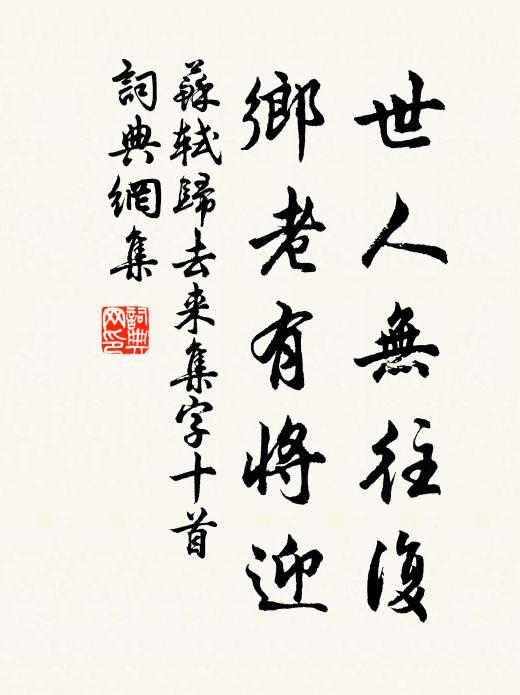 世人無往復
鄉老有將迎
蘇軾歸去来集字十首
詞典網集
詞典网印